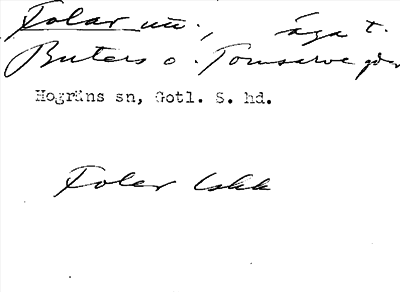 Folar un., äga t.
Buters o. Tomsarve gdr
Hogräns sn, Gotl. S. hd.
Folar Lskk